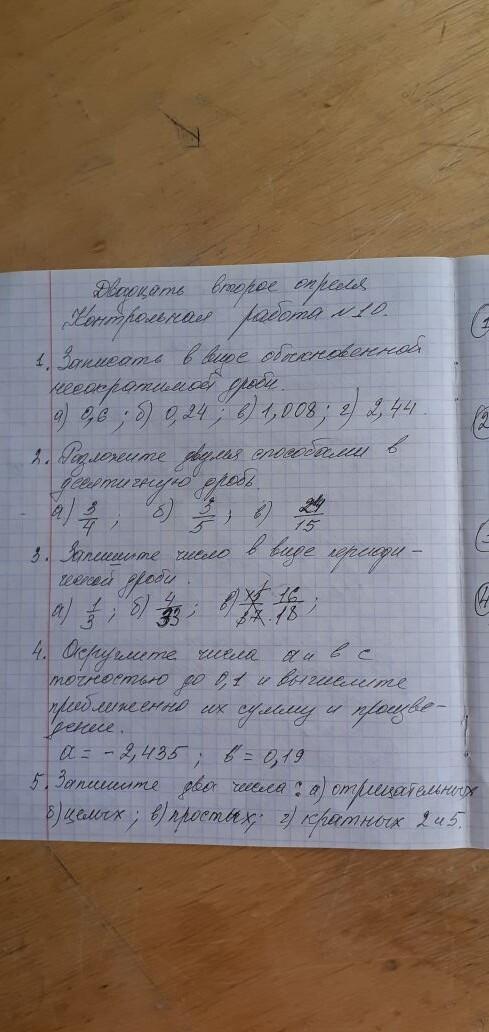 Двадцать второе апреля
Контрольная работа №10.
1. Записать в виде обыкновенной
несократимой дроби.
а) 0,6; б) 0,24; в) 1,008; г) 2,44.
2. Разложите двумя способами в
десятичную дробь
а) 3/4; б) 3/5; в) 24/15
3. Запишите число в виде периоди-
ческой дроби.
а) 1/3; б) 4/33; в) 16/18;
4. Округлите числа а и в с
точностью до 0,1 и вычислите
приближенно их сумму и произве-
дение.
а = - 2,435; в = 0,19
5. Запишите два числа: а) отрицательных
б) целых; в) простых; г) кратных 2 и 5.